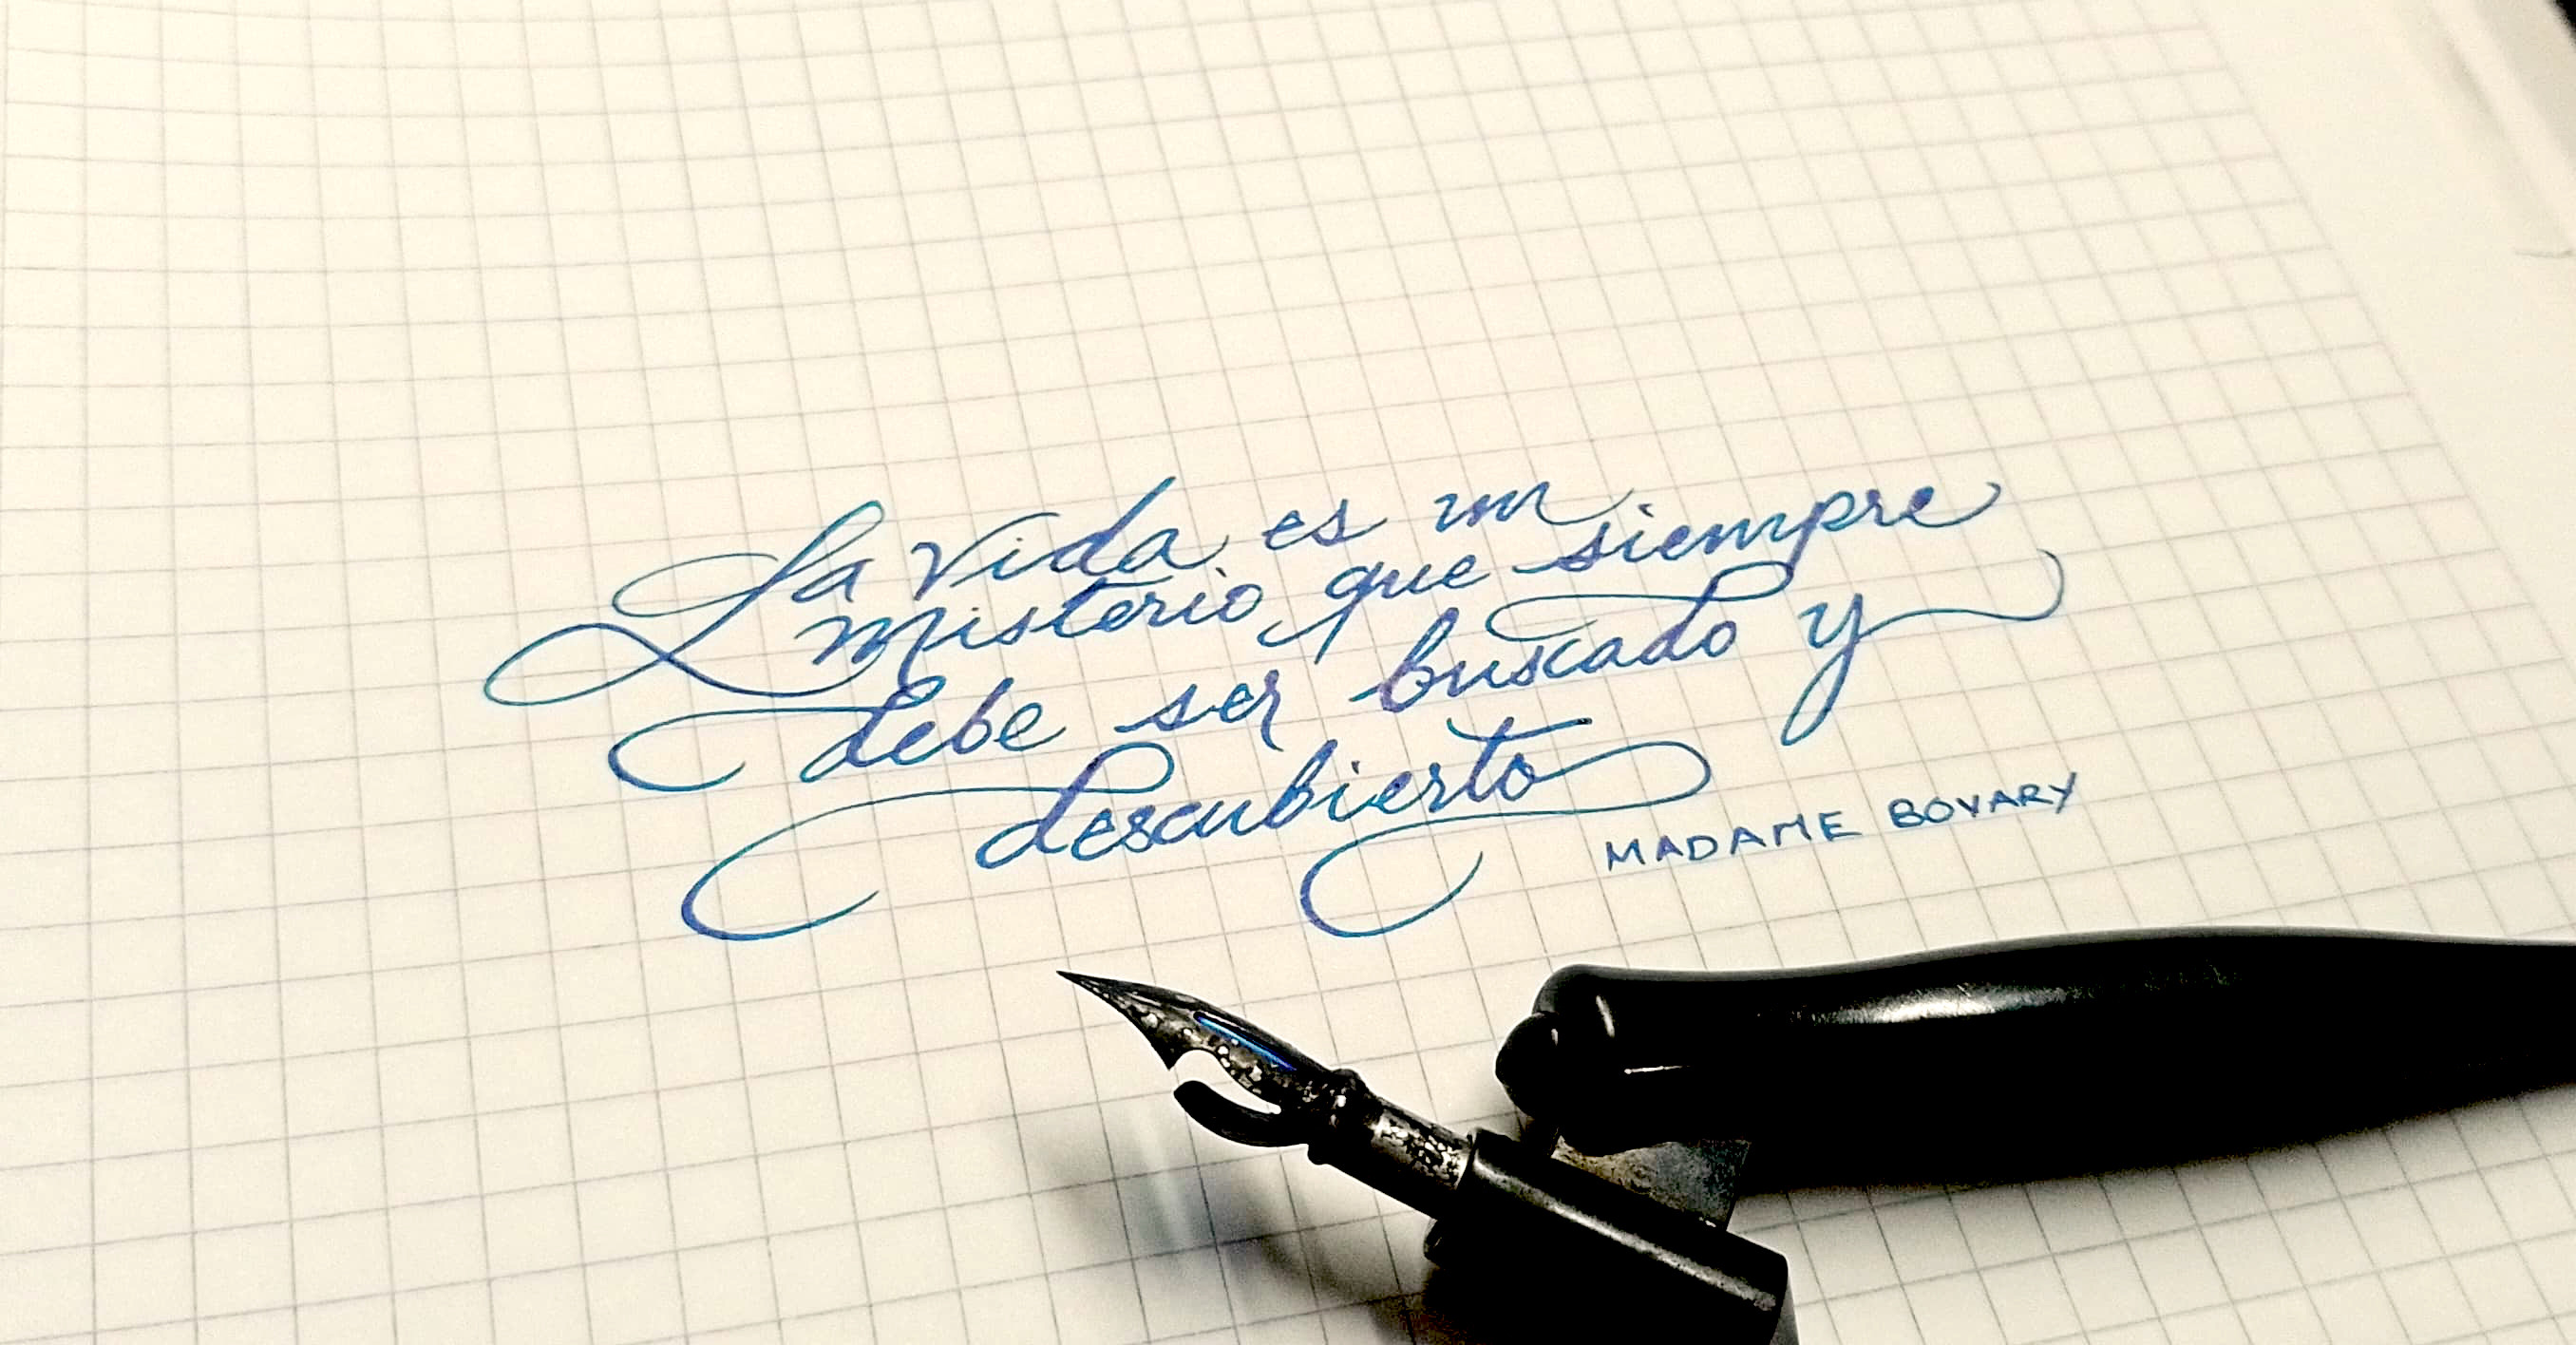 La vida es un
misterio que siempre
debe ser buscado y
descubierto
MADAME BOVARY